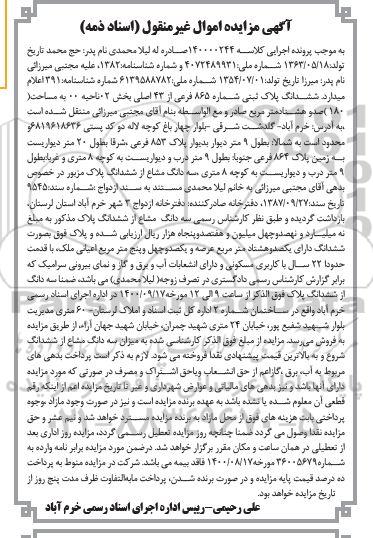 آگهی مزایده اموال غیرمنقول (اسناد ذمه)
به موجب پرونده اجرایی کلاسه ۱۴۰۰۰۰۲۴۴ صادره له لیلا محمدی نام پدر: حج محمد تاریخ
تولد: ۱۳۶۳/۰۵/۱۸ شماره ملی: ۴۰۷۲۴۸۹۹۳۱ و شماره شناسنامه: ۱۳۸۲، علیه مجتبی میرزائی
نام پدر: میرزا تاریخ تولد: ۱۳۵۴/۰۷/۰۱ شماره ملی: ۶۱۳۹۵۸۸۷۸۲ شماره شناسنامه: ۳۹۱ اعلام
میدارد ششدانگ پلاک ثبتی شماره ۸۶۵ فرعی از ۴۳ اصلی بخش ۲ ناحیه ۰۰ به مساحت(
۱۸۰) صدو هشتادمتر مربع صادر و مع الواسطه بنام آقای مجتبی میرزائی منتقل شده است
،به آدرس: خرم آباد- گلدشت شرقی -بلوار چهار باغ کوچه لاله دو کد پستی ۶۸۱۹۶۱۸۶۳۶ و
محدود است به شمالا: بطول ۹ متر دیوار بدیوار پلاک ۸۵۳ فرعی ،شرقا بطول ۲۰ متر دیواریست
به زمین پلاک ۸۶۴ فرعی جنوبا: بطول ۹ متر درب و دیواریست به کوچه ۸ متری و غربا بطول
۹ متر درب و دیواریست به کوچه ۸ متری ،سه دانگ مشاع از ششدانگ پلاک مزبور در خصوص
بدهی آقای مجتبی میرزائی به خانم لیلا محمدی مستند به سند ازدواج ؛شماره سند: ۹۵۴۵،
تاریخ سند: ۱۳۸۷/۰۹/۲۷، دفترخانه صادرکننده: دفترخانه ازدواج ۳ شهر خرم آباد استان لرستان،
بازداشت گردیده و طبق نظر کارشناس رسمی سه دانگ مشاع از ششدانگ پلاک مذکور به مبلغ
نه میلیارد و نهصدوچهل میلیون و هفتصدوپنجاه هزار ریال ارزیابی شده و پلاک فوق بصورت
ششدانگ دارای یکصدوهشتاد متر مربع عرصه و یکصدوچهل وپنج متر مربع اعیانی ملک، با قدمت
حدودا ۲۲ سال با کاربری مسکونی و دارای انشعابات آب و برق و گاز و نمای بیرونی سرامیک که
برابر گزارش کارشناس رسمی دادگستری در تصرف زوجه( لیلا محمدی) می باشد، ضمنا سه دانگ
از ششدانگ پلاک فوق الذکر از ساعت ۹ الی ۱۲ مورخه ۱۴۰۰/۰۹/۱۷ در اداره اجرای اسناد رسمی
خرم آباد واقع در ساختمان شماره ۲ اداره کل ثبت اسناد و املاک لرستان- ۶۰ متری مدیریت
بلوار شهید شفیع پور، خیابان ۲۴ متری شهید چمران، خیابان شهید جهان آرا، از طریق مزایده
به فروش می‌رسد. مزایده از مبلغ فوق الذکر کارشناسی شده به میزان سه دانگ مشاع از ششدانگ
شروع و به بالاترین قیمت پیشنهادی نقدا فروخته می شود. لازم به ذکر است پرداخت بدهی های
مربوط به آب، برق ،گاز اعم از حق انشعاب و یا حق اشتراک و مصرف در صورتی که مورد مزایده
دارای آنها باشد و نیز بدهی های مالیاتی و عوارض شهرداری و غیر تا تاریخ مزایده اعم از اینکه رقم
قطعی آن معلوم شده یا نشده باشد به عهده برنده مزایده است و نیز در صورت وجود مازاد ،وجوه
پرداختی بابت هزینه های فوق از محل مازاد به برنده مزایده مسترد خواهد شد و نیم عشر و حق
مزایده نقدا وصول می گردد ضمنا چنانچه روز مزایده تعطیل رسمی گردد، مزایده روز اداری بعد
از تعطیلی در همان ساعت و مکان مقرر برگزار خواهد شد. درضمن مورد مزایده برابر نامه وارده به
شماره ۳۶۰۰۵۶۷۹ مورخه ۱۴۰۰/۰۸/۱۷ فاقد بیمه می باشد. شرکت در مزایده منوط به پرداخت
ده درصد قیمت پایه مزایده و در صورت برنده شدن، پرداخت مابه‌التفاوت ظرف مدت پنج روز از
تاریخ مزایده خواهد بود.
علی رحیمی-رییس اداره اجرای اسناد رسمی خرم آباد